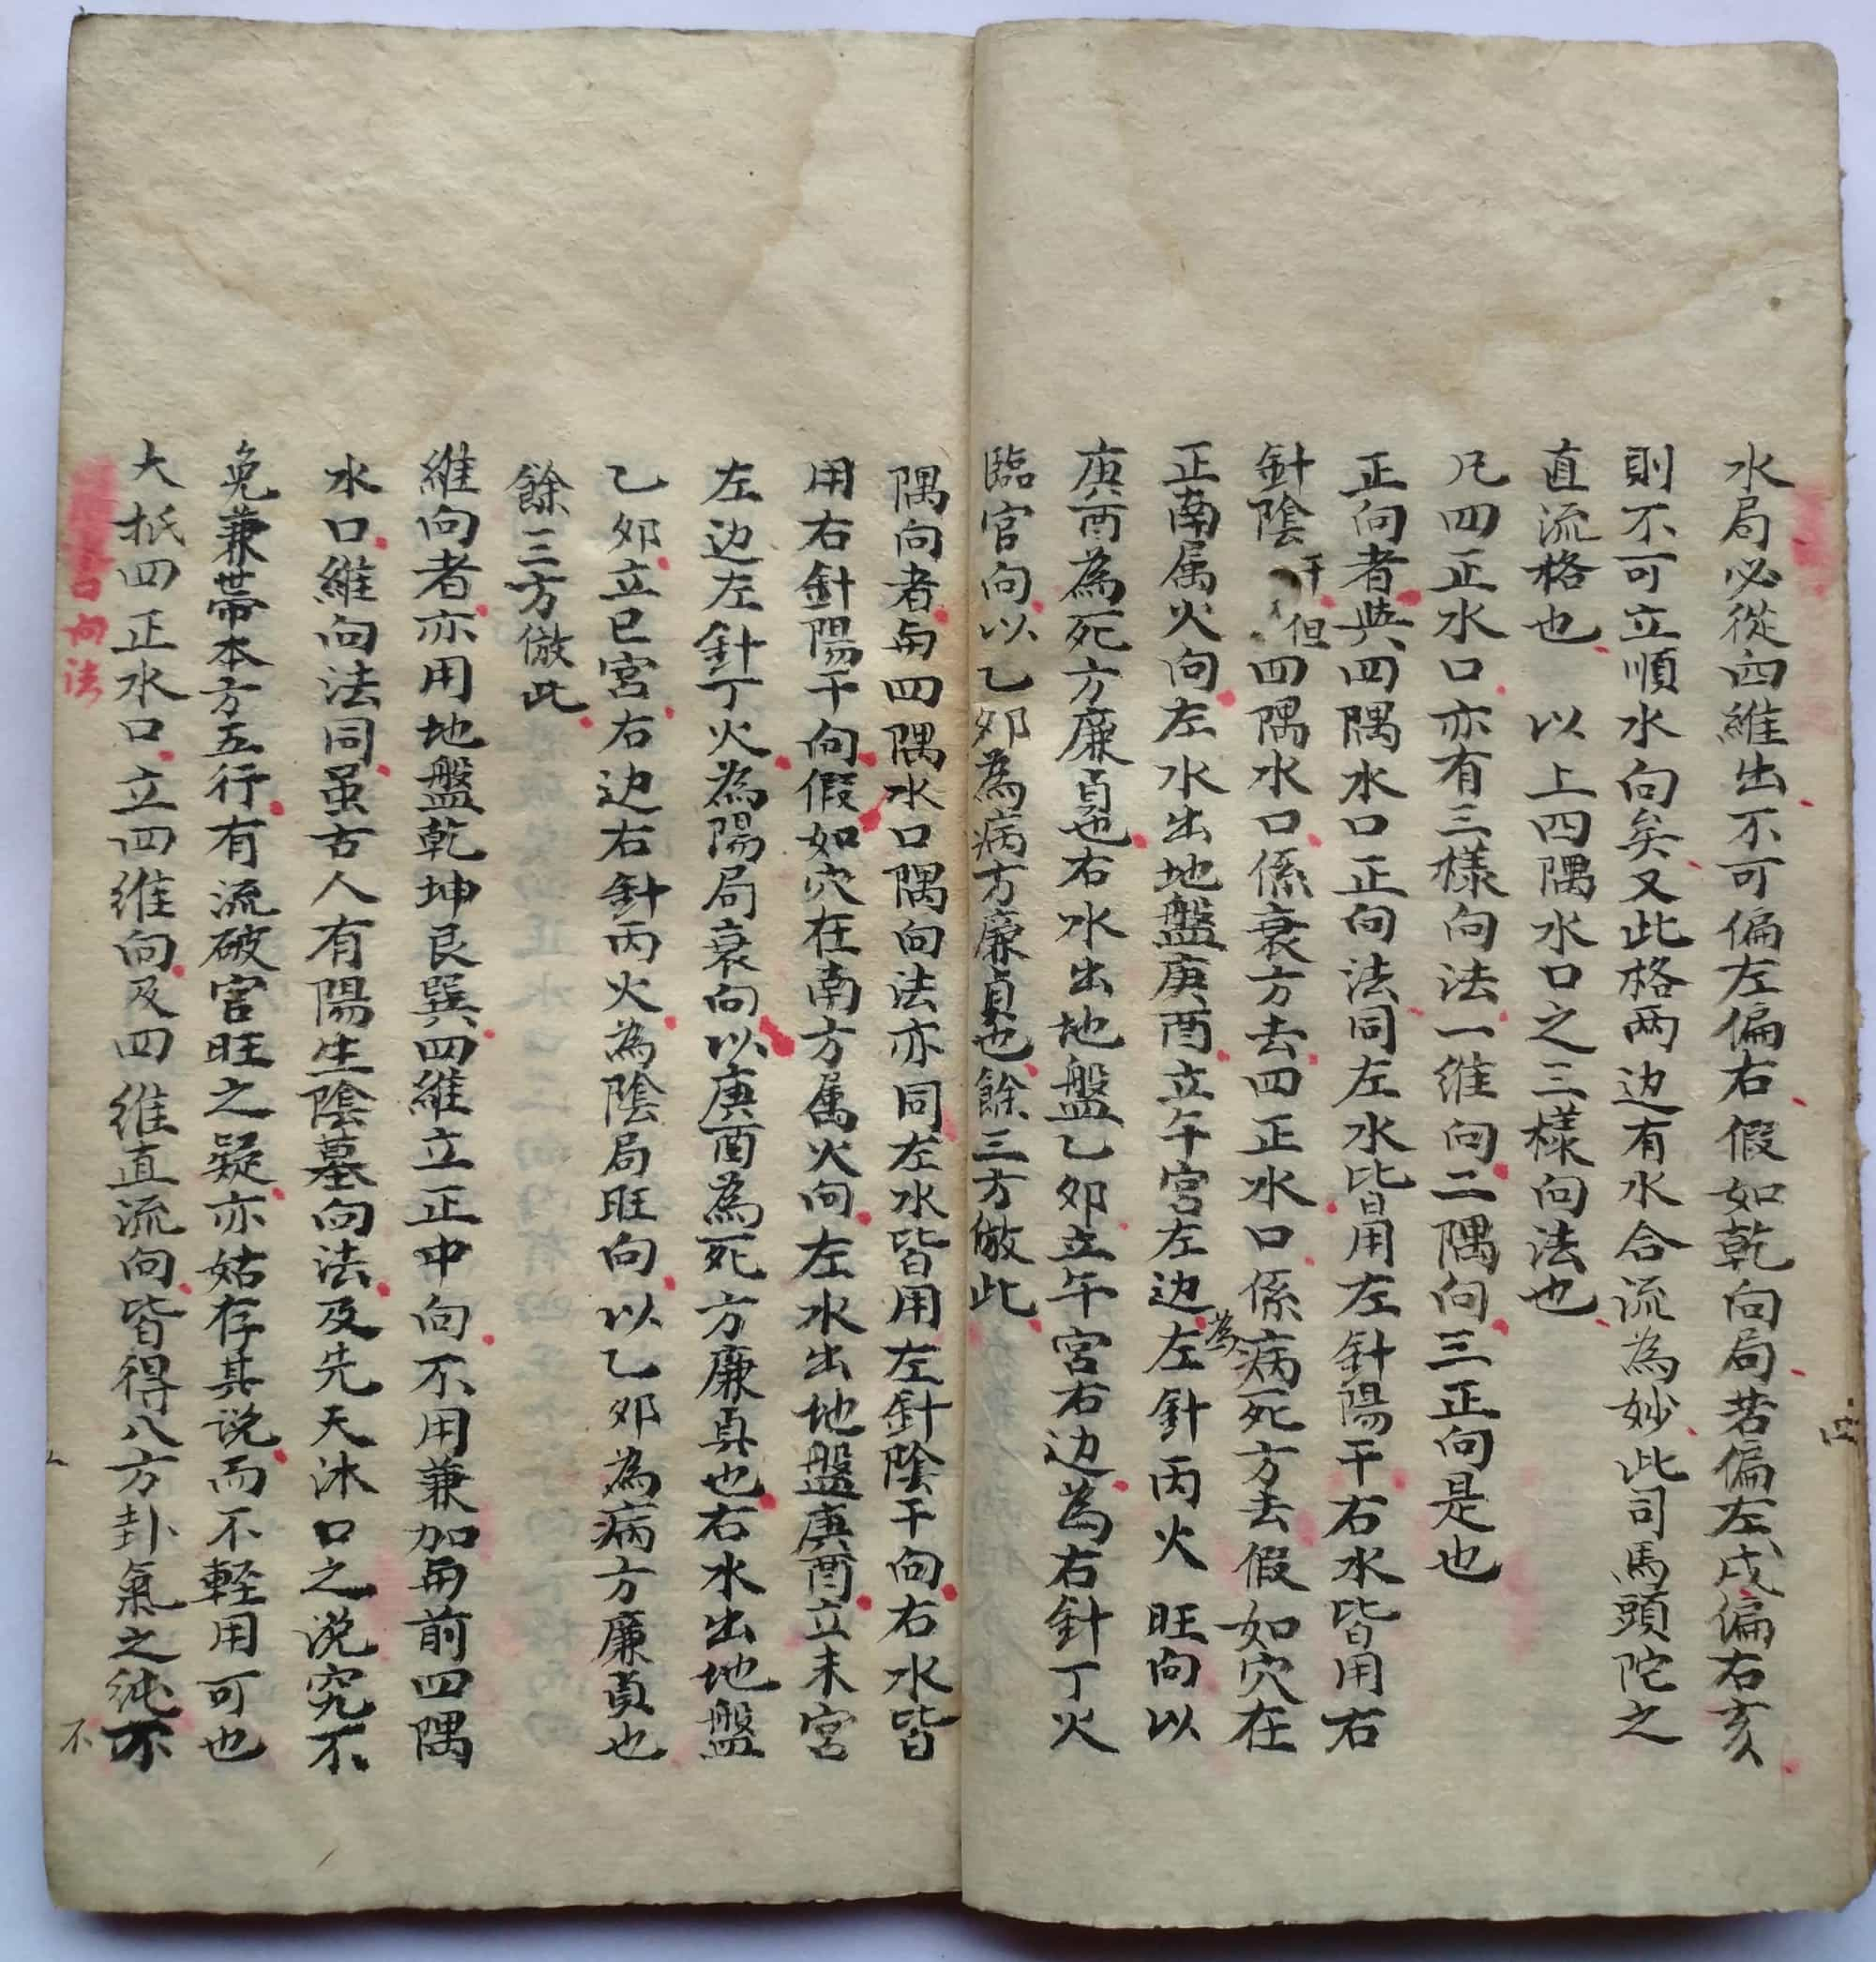 水局必從四維出不可偏左偏右假如乾向局若偏左戌偏右亥
則不可立順水向矣又此格两边有水合流為妙此司馬頭陀之
直流格也 以上四隅水口之三樣向法也
凡四正水口亦有三樣向法一維向二隅向三正向是也
正向者與四隅水口正向法同左水皆用左針陽干右水皆用右
針陰干但四隅水口係衰方去四正水口係病死方去假如穴在
正南属火向左水出地盤庚酉立午宮左边為左針丙火旺向以
庚酉為死方廉貞也右水出地盤乙夘立午宮右边為右針丁火
臨官向以乙夘為病方廉貞也餘三方倣此
隅向者与四隅水口隅向法亦同左水皆用左針陰干向右水皆
用右針陽干向假如穴在南方属火向左水出地盤庚酉立未宮
左边左針丁火為陽局衰向以庚酉為死方廉真也右水出地盤
乙夘立巳宮右边右針丙火為陰局旺向以乙夘為病方廉貞也
餘三方倣此
維向者亦用地盤乾坤艮巽四維立正中向不用兼加与前四隅
水口維向法同虽古人有陽生陰墓向法及先天沐口之说究不
免兼帯本方五行有流破官旺之疑亦姑存其说而不輕用可也
大抵四正水口立四维向及四维直流向皆得八方卦氣之純不
不
向法
四